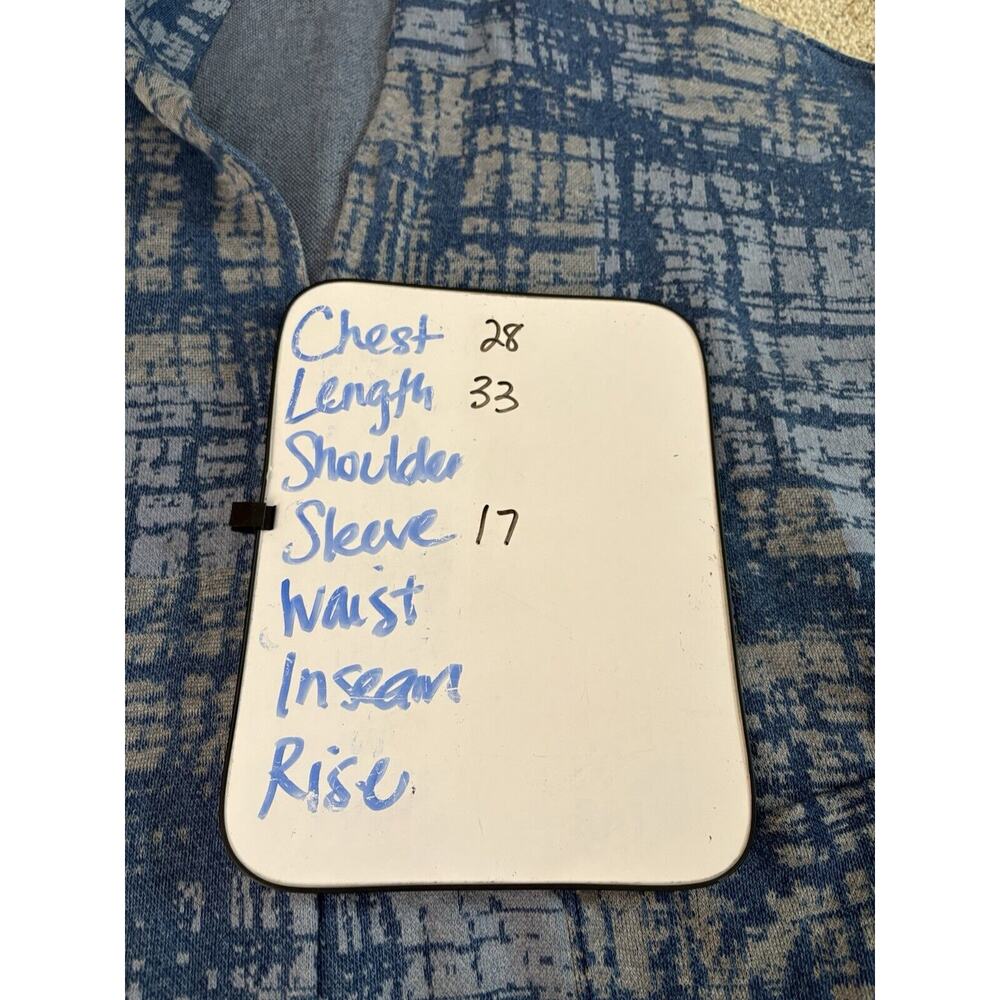 Chest 28
Length 33
Shoulder
Sleeve 17
Waist
Inseam
Rise